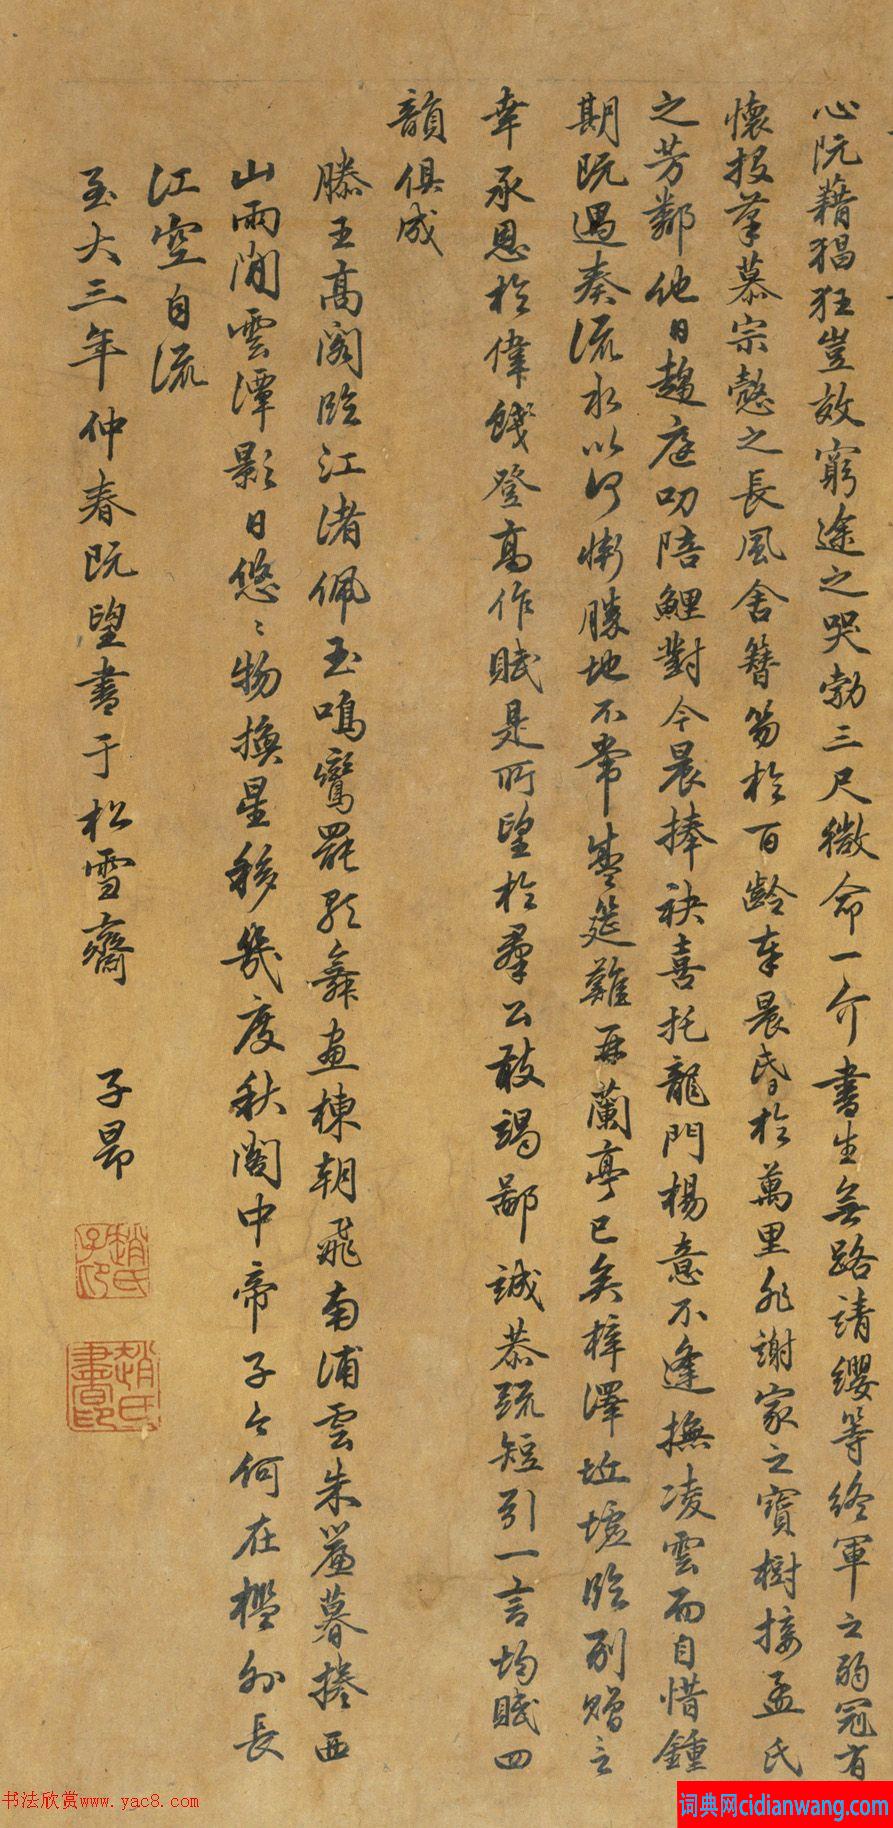 心阮藉猖狂豈效窮途之哭勃三尺微命一介書生無路請纓等終軍之弱冠有
懷投筆慕宗愨之長風舍簪笏於百齡奉晨昏於萬里非謝家之寶樹接孟氏
之芳鄰他日趨庭叨陪鯉對今晨捧袂喜托龍門楊意不逢撫凌雲而自惜鍾
期既遇奏流水以何慚勝地不常盛筵難再蘭亭已矣梓澤丘墟臨別贈言
幸承恩於偉餞登高作賦是所望於群公敢竭鄙誠恭疏短引一言均賦四
韻俱成
滕王高閣臨江渚佩玉鳴鸞罷歌舞畫棟朝飛南浦雲朱簾暮捲西
山雨閒雲潭影日悠〻物換星移幾度秋閣中帝子今何在檻外長
江空自流
至大三年仲春既望書于松雪齋 子昂
趙氏子昂
趙氏書印
书法欣赏www.yac8.com
词典网cidianwang.com